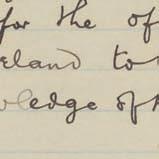 for the of
reland to
wledge of